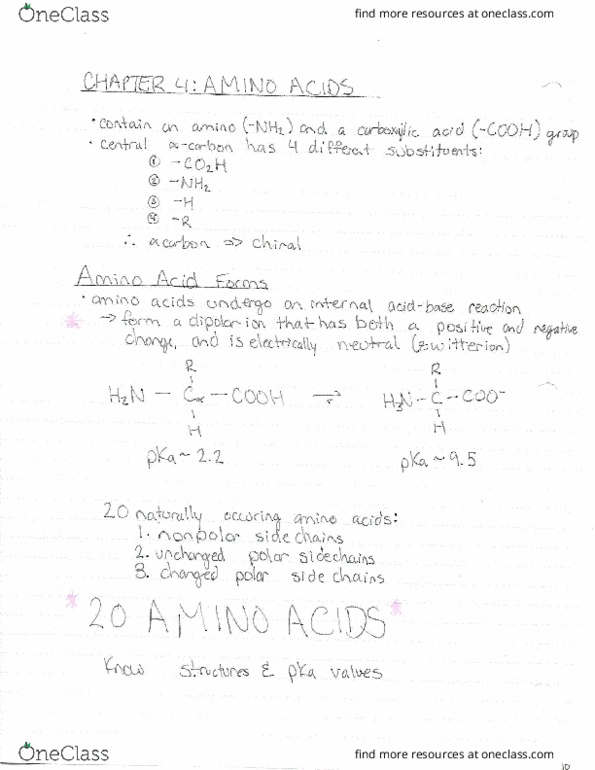 OneClass find more resources at oneclass.com
CHAPTER 4: AMINO ACIDS
• contain an amino (-NH₂) and a carboxylic acid (-COOH) group
• central α-carbon has 4 different substituents:
① -CO₂H
② -NH₂
③ -H
④ -R
∴ α carbon => chiral
Amino Acid Forms
• amino acids undergo an internal acid-base reaction
* → form a dipolar ion that has both a positive and negative
change, and is electrically neutral (zwitterion)
R R
H₂N - Cα - COOH ⇌ H₃N - C - COO⁻
H H
pKa ~ 2.2 pKa ~ 9.5
20 naturally occuring amino acids:
1. nonpolar side chains
2. unchanged polar sidechains
3. changed polar side chains
* 20 AMINO ACIDS *
Know structures & pKa values
OneClass find more resources at oneclass.com
10